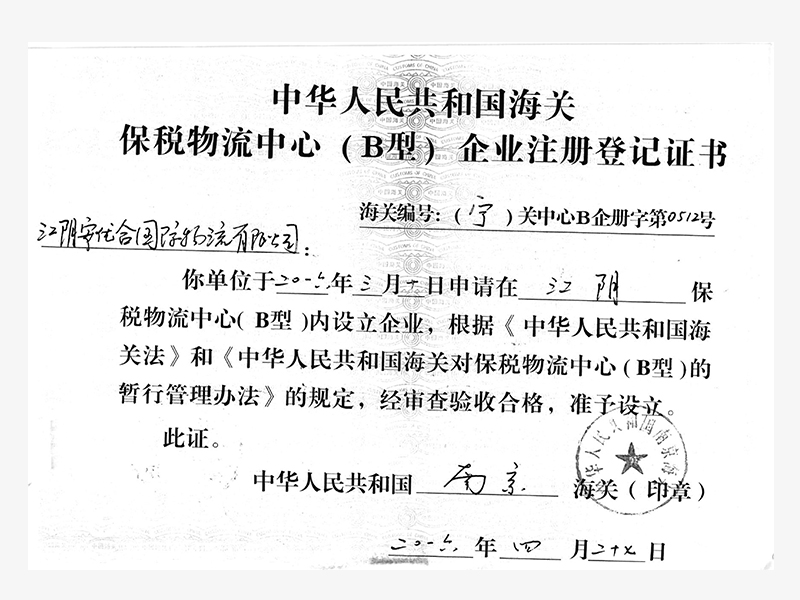 中华人民共和国海关
保税物流中心（B型）企业注册登记证书
海关编号：（宁）关中心B企册字第0512号
江阴安优合国际物流有限公司：
你单位于二〇一六年三月十日申请在江阴保
税物流中心（B型）内设立企业，根据《中华人民共和国海
关法》和《中华人民共和国海关对保税物流中心（B型）的
暂行管理办法》的规定，经审查验收合格，准予设立。
此证。
中华人民共和国南京海关（印章）
中华人民共和国南京海关
二〇一六年四月二十七日